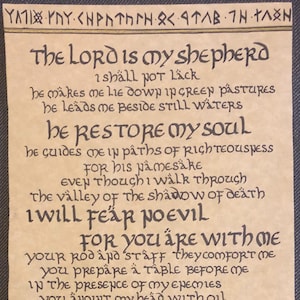 the Lord is my shepherd
i shall not lack
he makes me lie down in green pastures
he leads me beside still waters
he restore my soul
he guides me in paths of righteousness
for his namesake
even though i walk through
the valley of the shadow of death
i will fear no evil
for you are with me
your rod and staff they comfort me
you prepare a table before me
in the presence of my enemies
you anoint my head with oil